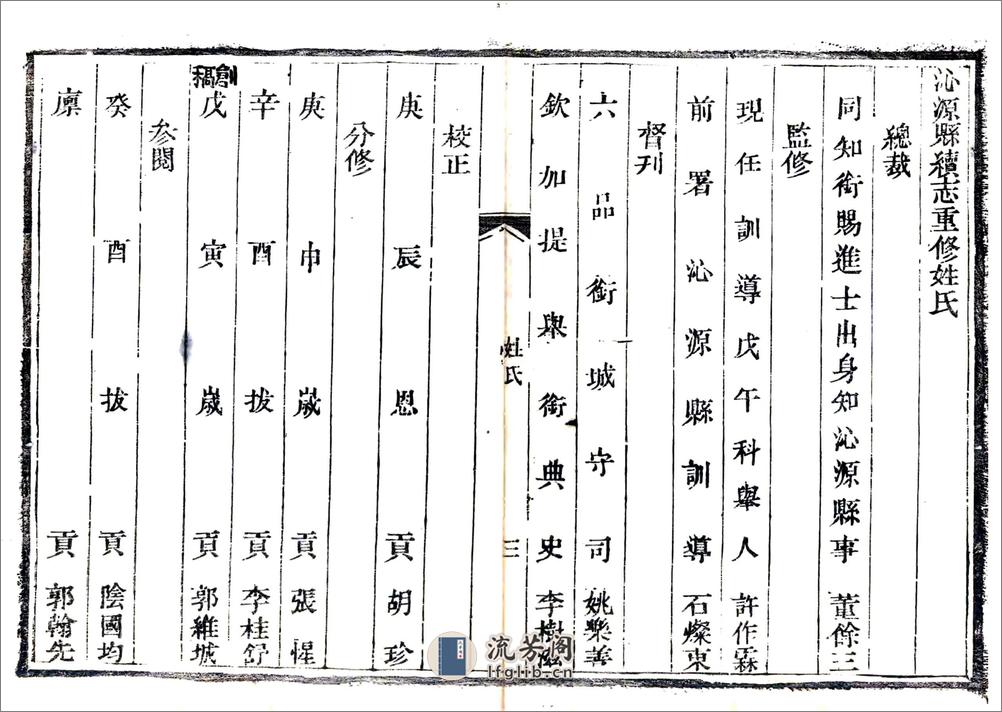 沁源縣續志重修姓氏
總裁
同知銜賜進士出身知沁源縣事 董餘三
監修
現任訓導戊午科舉人 許作霖
前署沁源縣訓導 石燦東
督刊
六品銜城守司 姚樂善
欽加提舉銜典史 李樹
姓氏
三
校正
庚辰恩貢 胡珍
分修
庚申歲貢 張惺
辛酉拔貢 李桂舒
創稿
戊寅歲貢 郭維城
參閱
癸酉拔貢 陰國均
廩貢 郭翰先
流芳閣
lfglib.cn